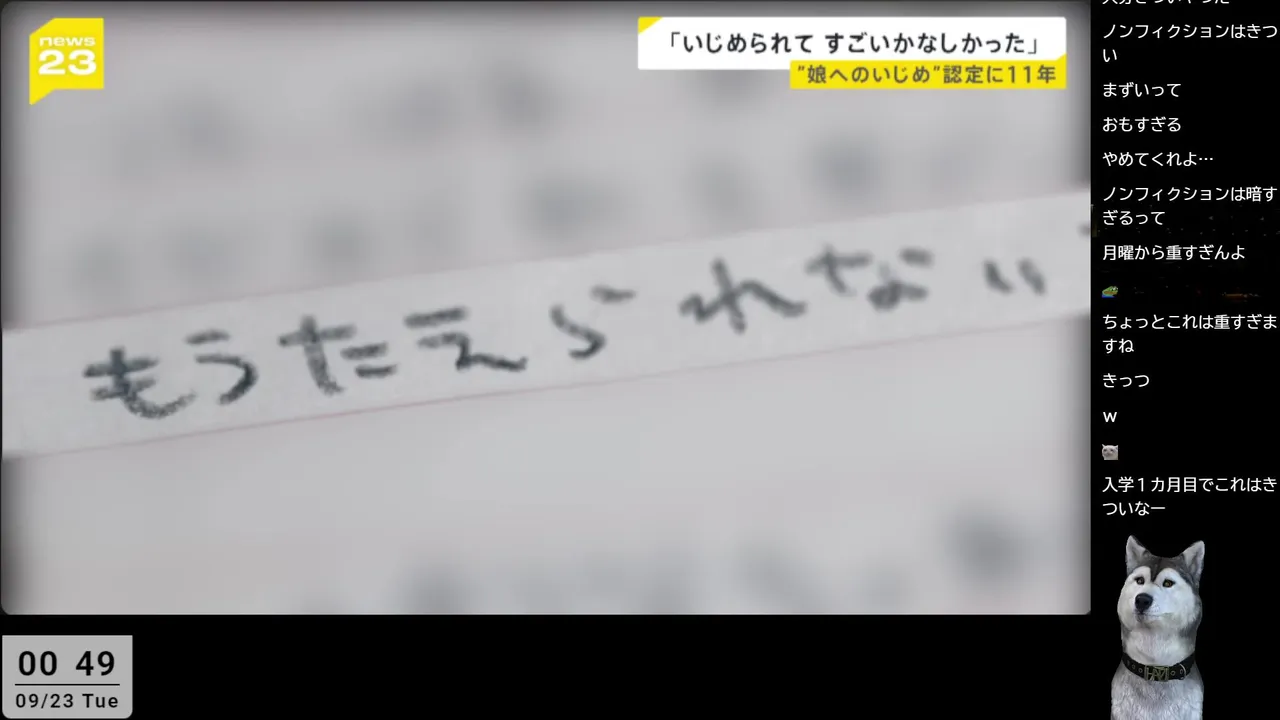 news
23
「いじめられて すごいかなしかった」
”娘へのいじめ”認定に11年
もうたえられない
ノンフィクションはきつ
い
まずいって
おもすぎる
やめてくれよ…
ノンフィクションは暗す
ぎるって
月曜から重すぎんよ
ちょっとこれは重すぎま
すね
きっつ
w
入学１カ月目でこれはき
ついなー
00 49
09/23 Tue